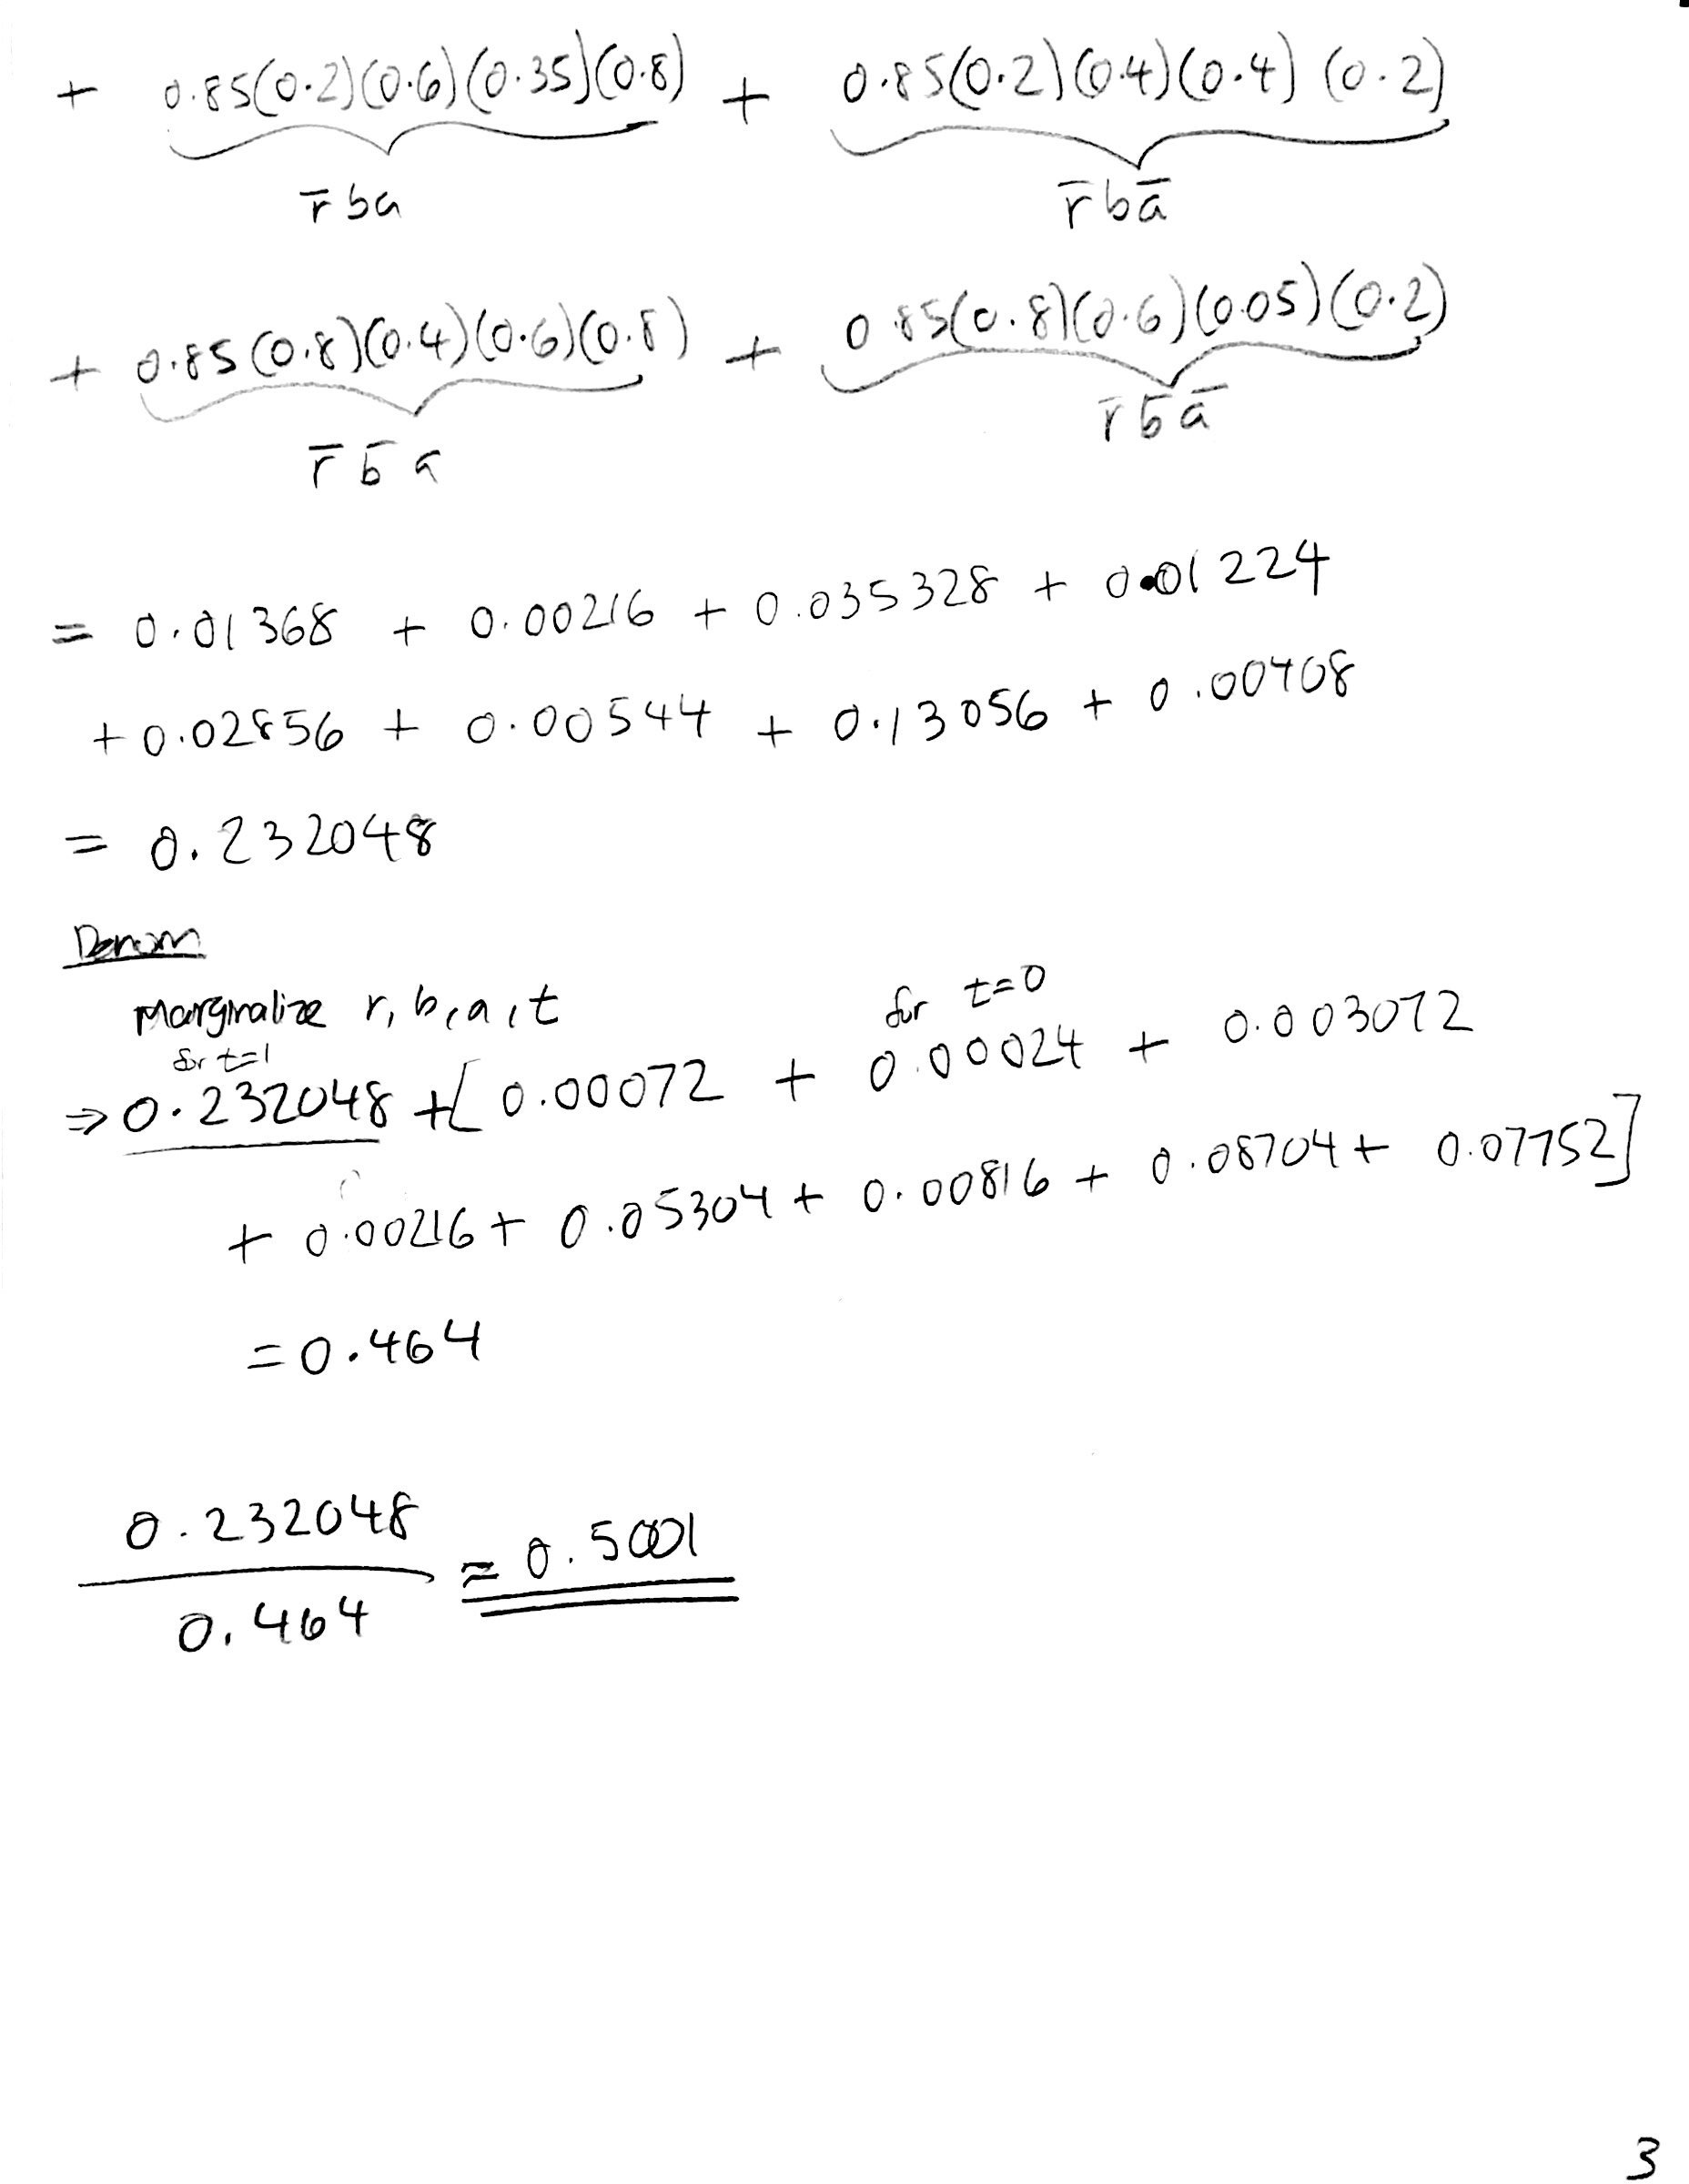 + 0.85(0.2)(0.6)(0.35)(0.8) + 0.85(0.2)(0.4)(0.4)(0.2)
r̅ba r̅ba̅
+ 0.85(0.8)(0.4)(0.6)(0.8) + 0.85(0.8)(0.6)(0.05)(0.2)
r̅b̅a r̅b̅a̅
= 0.01368 + 0.00216 + 0.035328 + 0.01224
+ 0.02856 + 0.00544 + 0.13056 + 0.00408
= 0.232048
Denom
Marginalize r, b, a, t
for t=1 for t=0
⇒ 0.232048 + [0.00072 + 0.00024 + 0.003072
+ 0.00216 + 0.05304 + 0.00816 + 0.08704 + 0.07752]
= 0.464
0.232048
≈ 0.5001
0.464
3